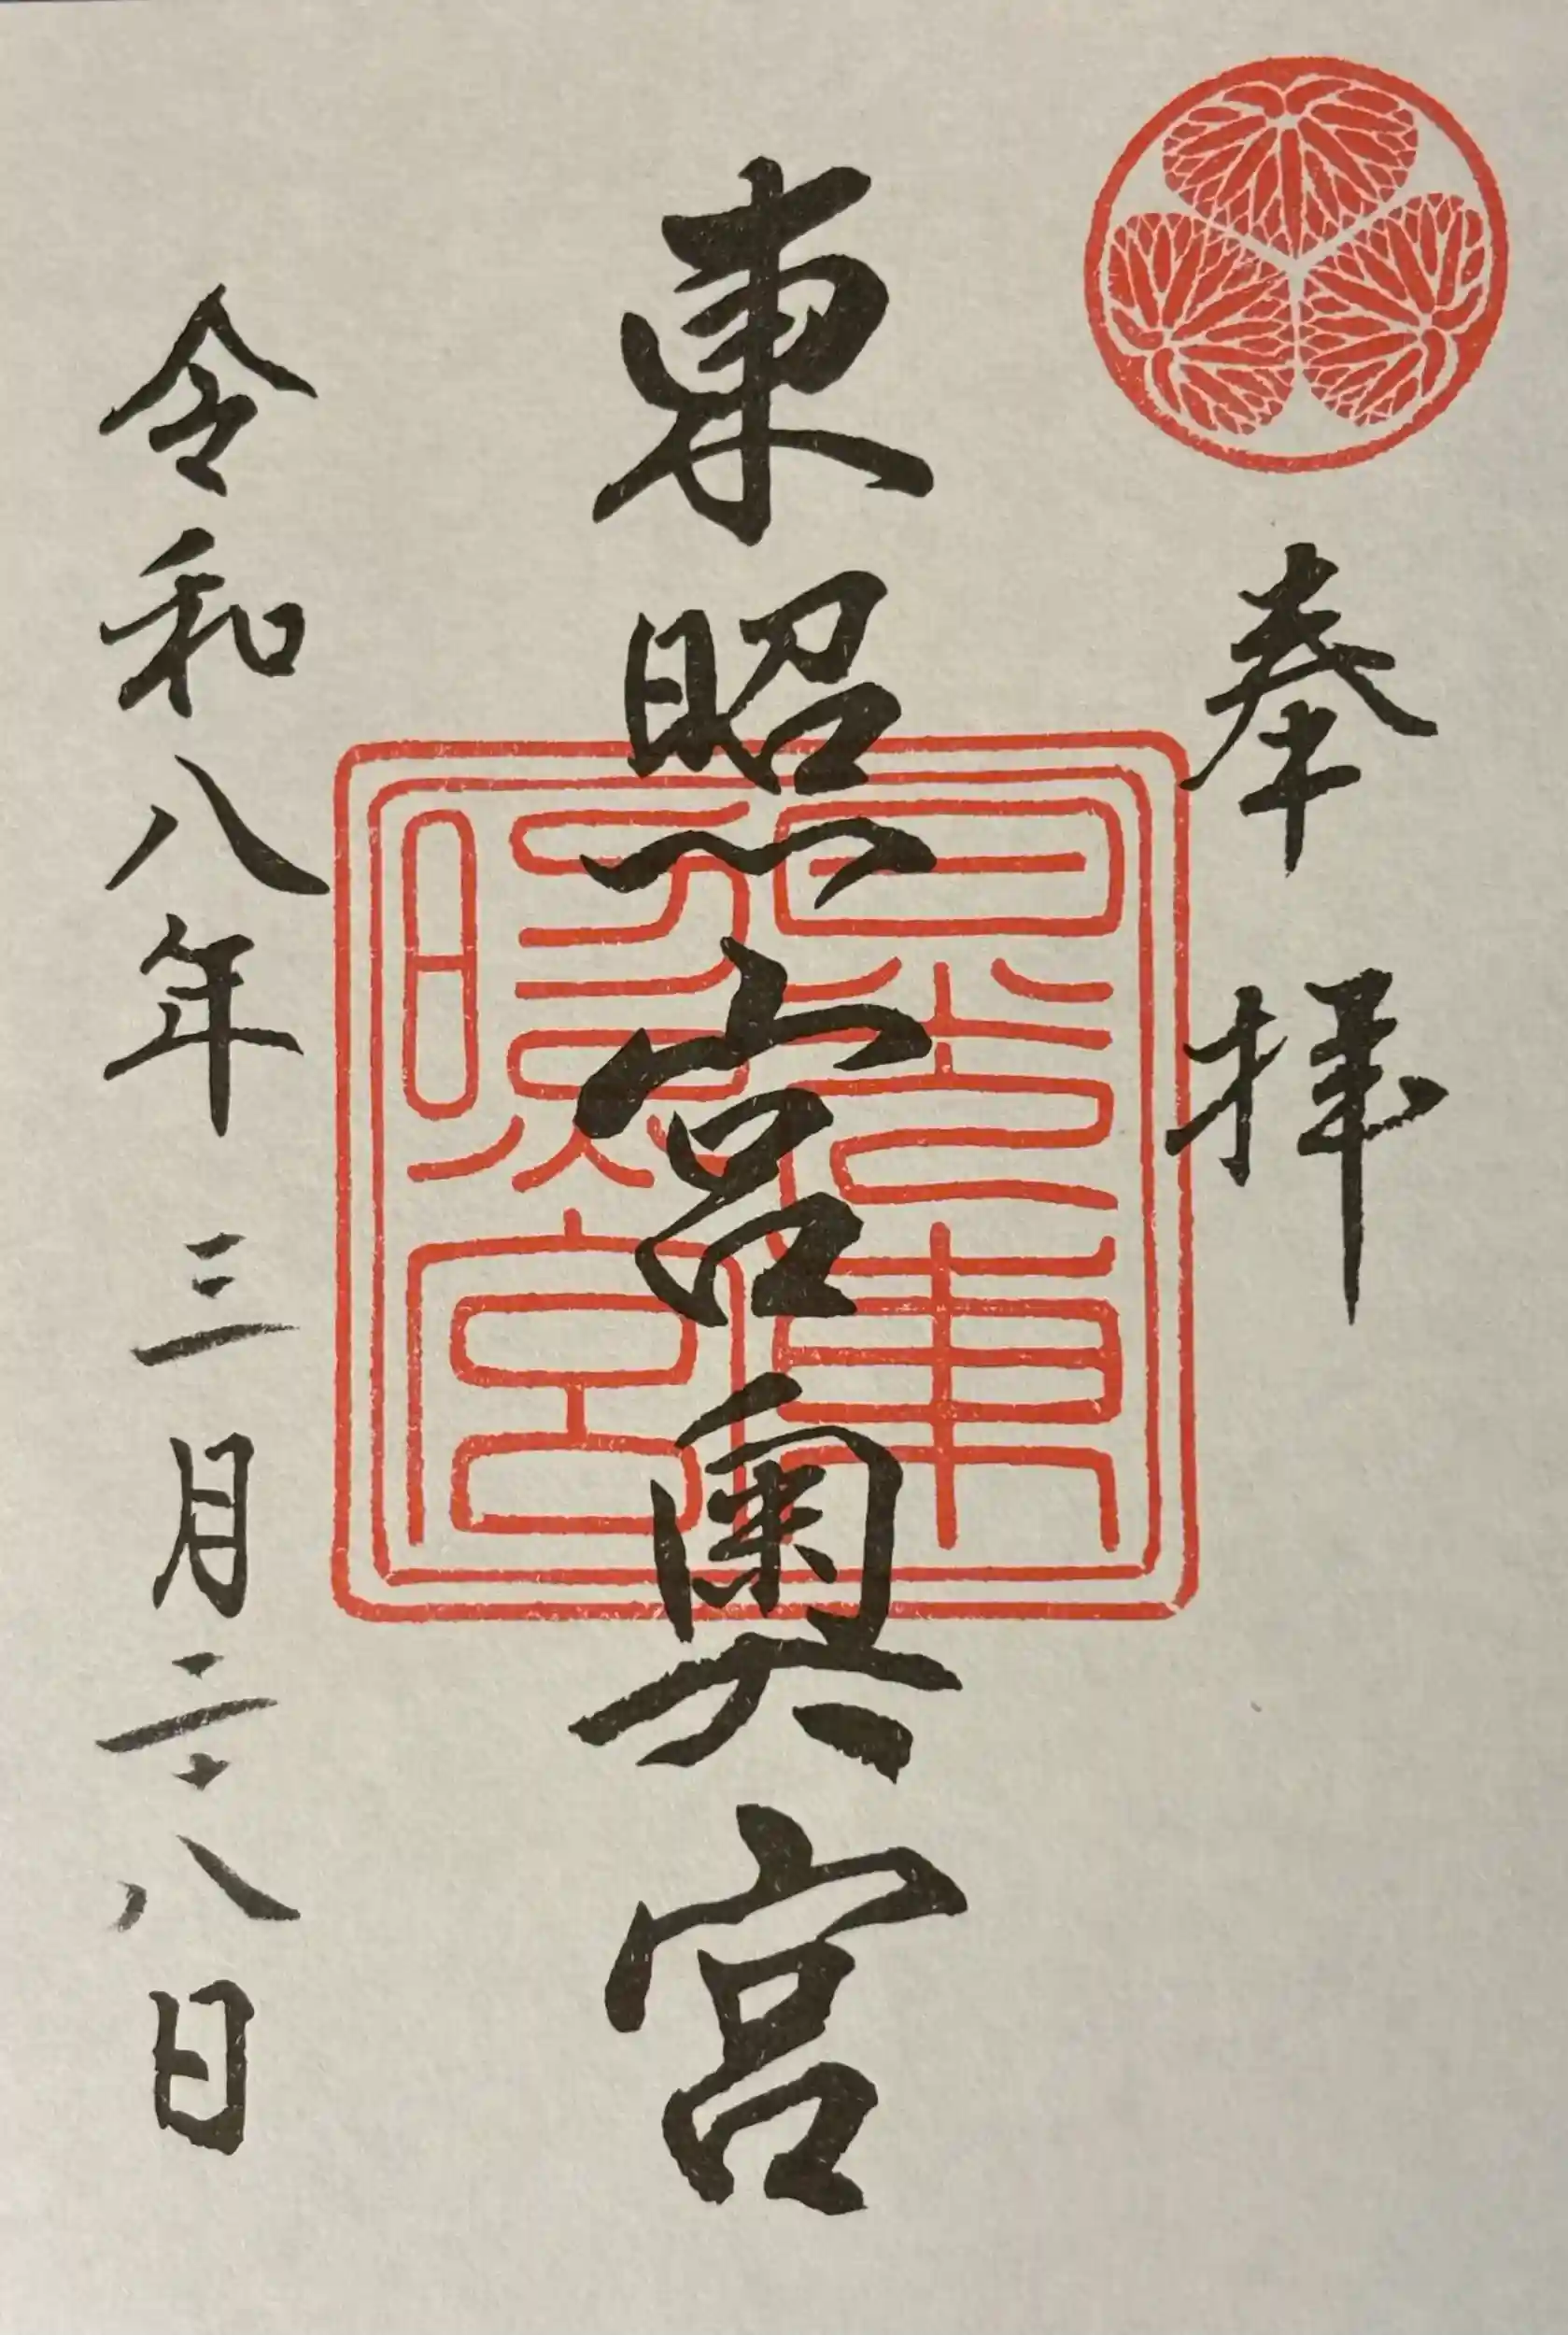 奉拝
東照宮奥宮
日光東
照宮
令和八年三月二十八日